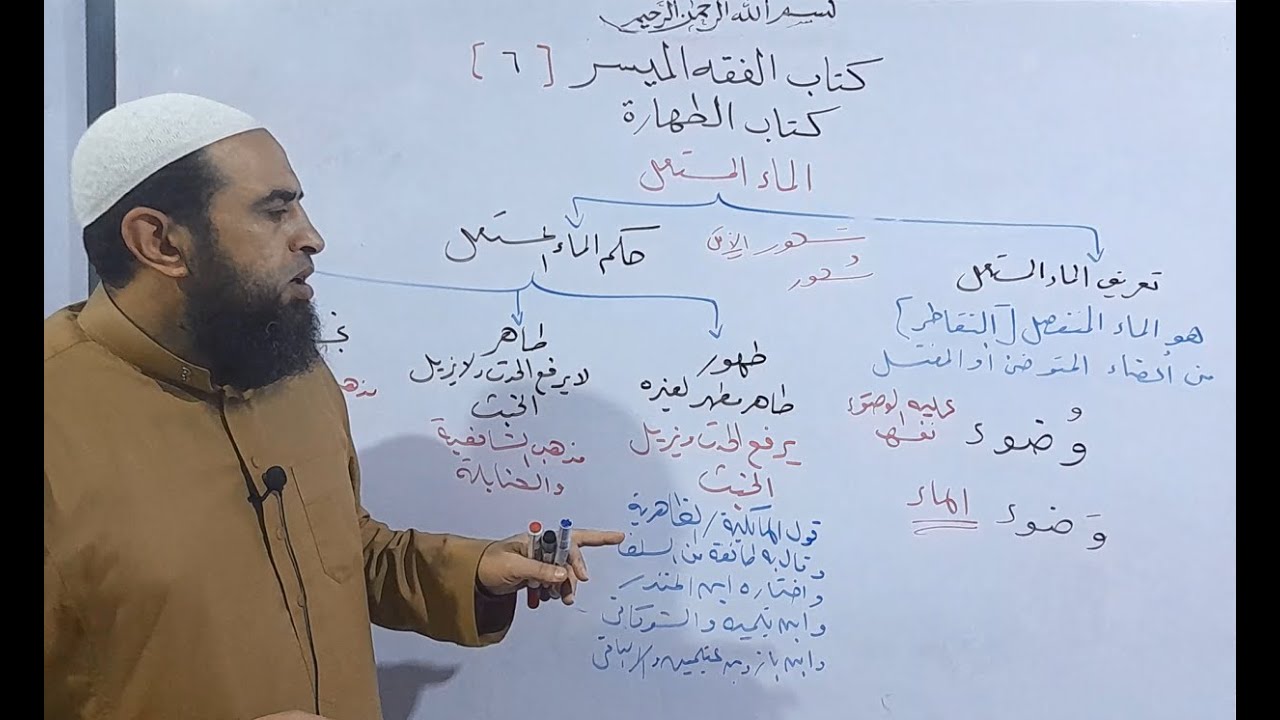 بسم الله الرحمن الرحيم
كتاب الفقه الميسر [ ٦ ]
كتاب الطهارة
الماء المستعمل
تعريف الماء المستعمل
هو الماء المنفصل [المتقاطر]
من أعضاء المتوضئ أو المغتسل
وُضوء عملية الوضوء نفسها
وَضوء الماء
طَهور
طُهور
حكم الماء المستعمل
طهور
طاهر مطهر لغيره
يرفع الحدث ويزيل
الخبث
قول المالكية/الظاهرية
وقال به طائفة من السلف
واختاره ابن المنذر
وابن تيمية والشوكاني
وابن باز وبن عثيمين
طاهر
لا يرفع الحدث ولا يزيل
الخبث
مذهب الشافعية
والحنابلة